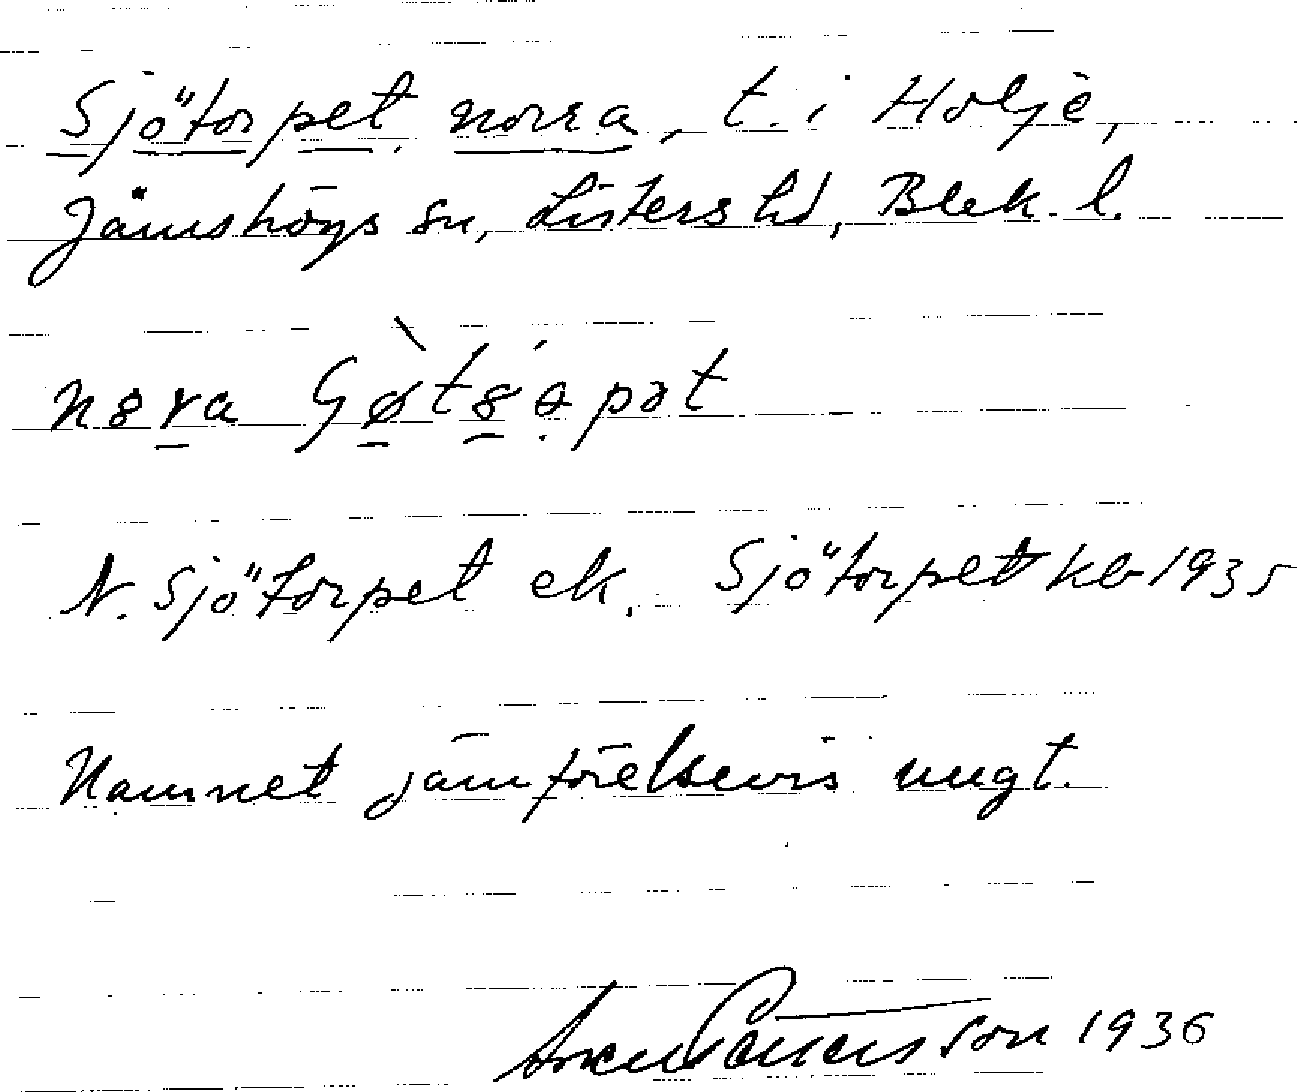 Sjötorpet norra, t. i Holje,
Jämshögs sn, Listers hd, Blek. l.
N. Sjötorpet ek. Sjötorpet kb 1935
Namnet jämförelsevis ungt.
1936